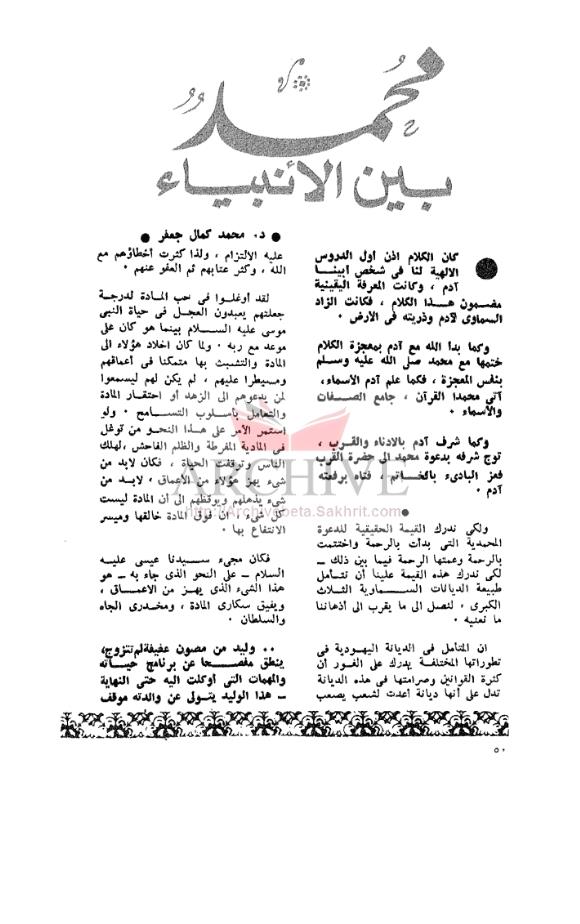 محمد
بين الأنبياء
● د. محمد كمال جعفر ●
كان الكلام اذن أول الدروس
الالهية لنا فى شخص أبينا
آدم ، وكانت المعرفة اليقينية
مضمون هذا الكلام ، فكانت الزاد
السماوى لآدم وذريته فى الأرض .
وكما بدأ الله مع آدم بمعجزة الكلام
ختمها مع محمد صلى الله عليه وسلم
بنفس المعجزة ، فكما علم آدم الأسماء،
آتى محمدا القرآن ، جامع الصفات
والأسماء .
وكما شرف آدم بالادناء والقرب ،
توج شرفه بدعوة محمد الى حضرة القرب
فعز البادىء بالخاتم ، فتاه برفعته
آدم .
●
ولكى ندرك القيمة الحقيقية للدعوة
المحمدية التى بدأت بالرحمة واختتمت
بالرحمة وعمتها الرحمة فيما بين ذلك –
لكى ندرك هذه القيمة علينا أن نتأمل
طبيعة الديانات السماوية الثلاث
الكبرى ، لنصل الى ما يقرب الى أذهاننا
ما نعنيه .
ان المتأمل فى الديانة اليهودية فى
تطوراتها المختلفة يدرك على الفور أن
كثرة القوانين وصرامتها فى هذه الديانة
تدل على أنها ديانة أعدت لشعب يصعب
عليه الالتزام ، ولذا كثرت أخطاؤهم مع
الله ، وكثر عتابهم ثم العفو عنهم .
لقد أوغلوا فى حب المادة لدرجة
جعلتهم يعبدون العجل فى حياة النبى
موسى عليه السلام بينما هو كان على
موعد مع ربه . ولما كان اخلاد هؤلاء الى
المادة والتشبث بها متمكنا فى أعماقهم
ومسيطرا عليهم ، لم يكن لهم ليسمعوا
لمن يدعوهم الى الزهد أو احتقار المادة
والتعامل بأسلوب التسامح . ولو
استمر الأمر على هذا النحو من توغل
فى المادية المفرطة والظلم الفاحش ،لهلك
الناس وتوقفت الحياة ، فكان لابد من
شىء يهز هؤلاء من الأعماق ، لابد من
شىء يذهلهم ويوقظهم الى أن المادة ليست
كل شىء ، أن فوق المادة خالقها وميسر
الانتفاع بها .
فكان مجىء سيدنا عيسى عليه
السلام – على النحو الذى جاء به – هو
هذا الشىء الذى يهز من الاعماق ،
ويفيق سكارى المادة ، ومخدرى الجاه
والسلطان .
.. وليد من مصون عفيفة لم تتزوج،
ينطق مفصحا عن برنامج حياته
والمهمات التى أوكلت اليه حتى النهاية
– هذا الوليد يتولى عن والدته موقف
٥٠
ARCHIVE
http://Archivebeta.Sakhrit.com